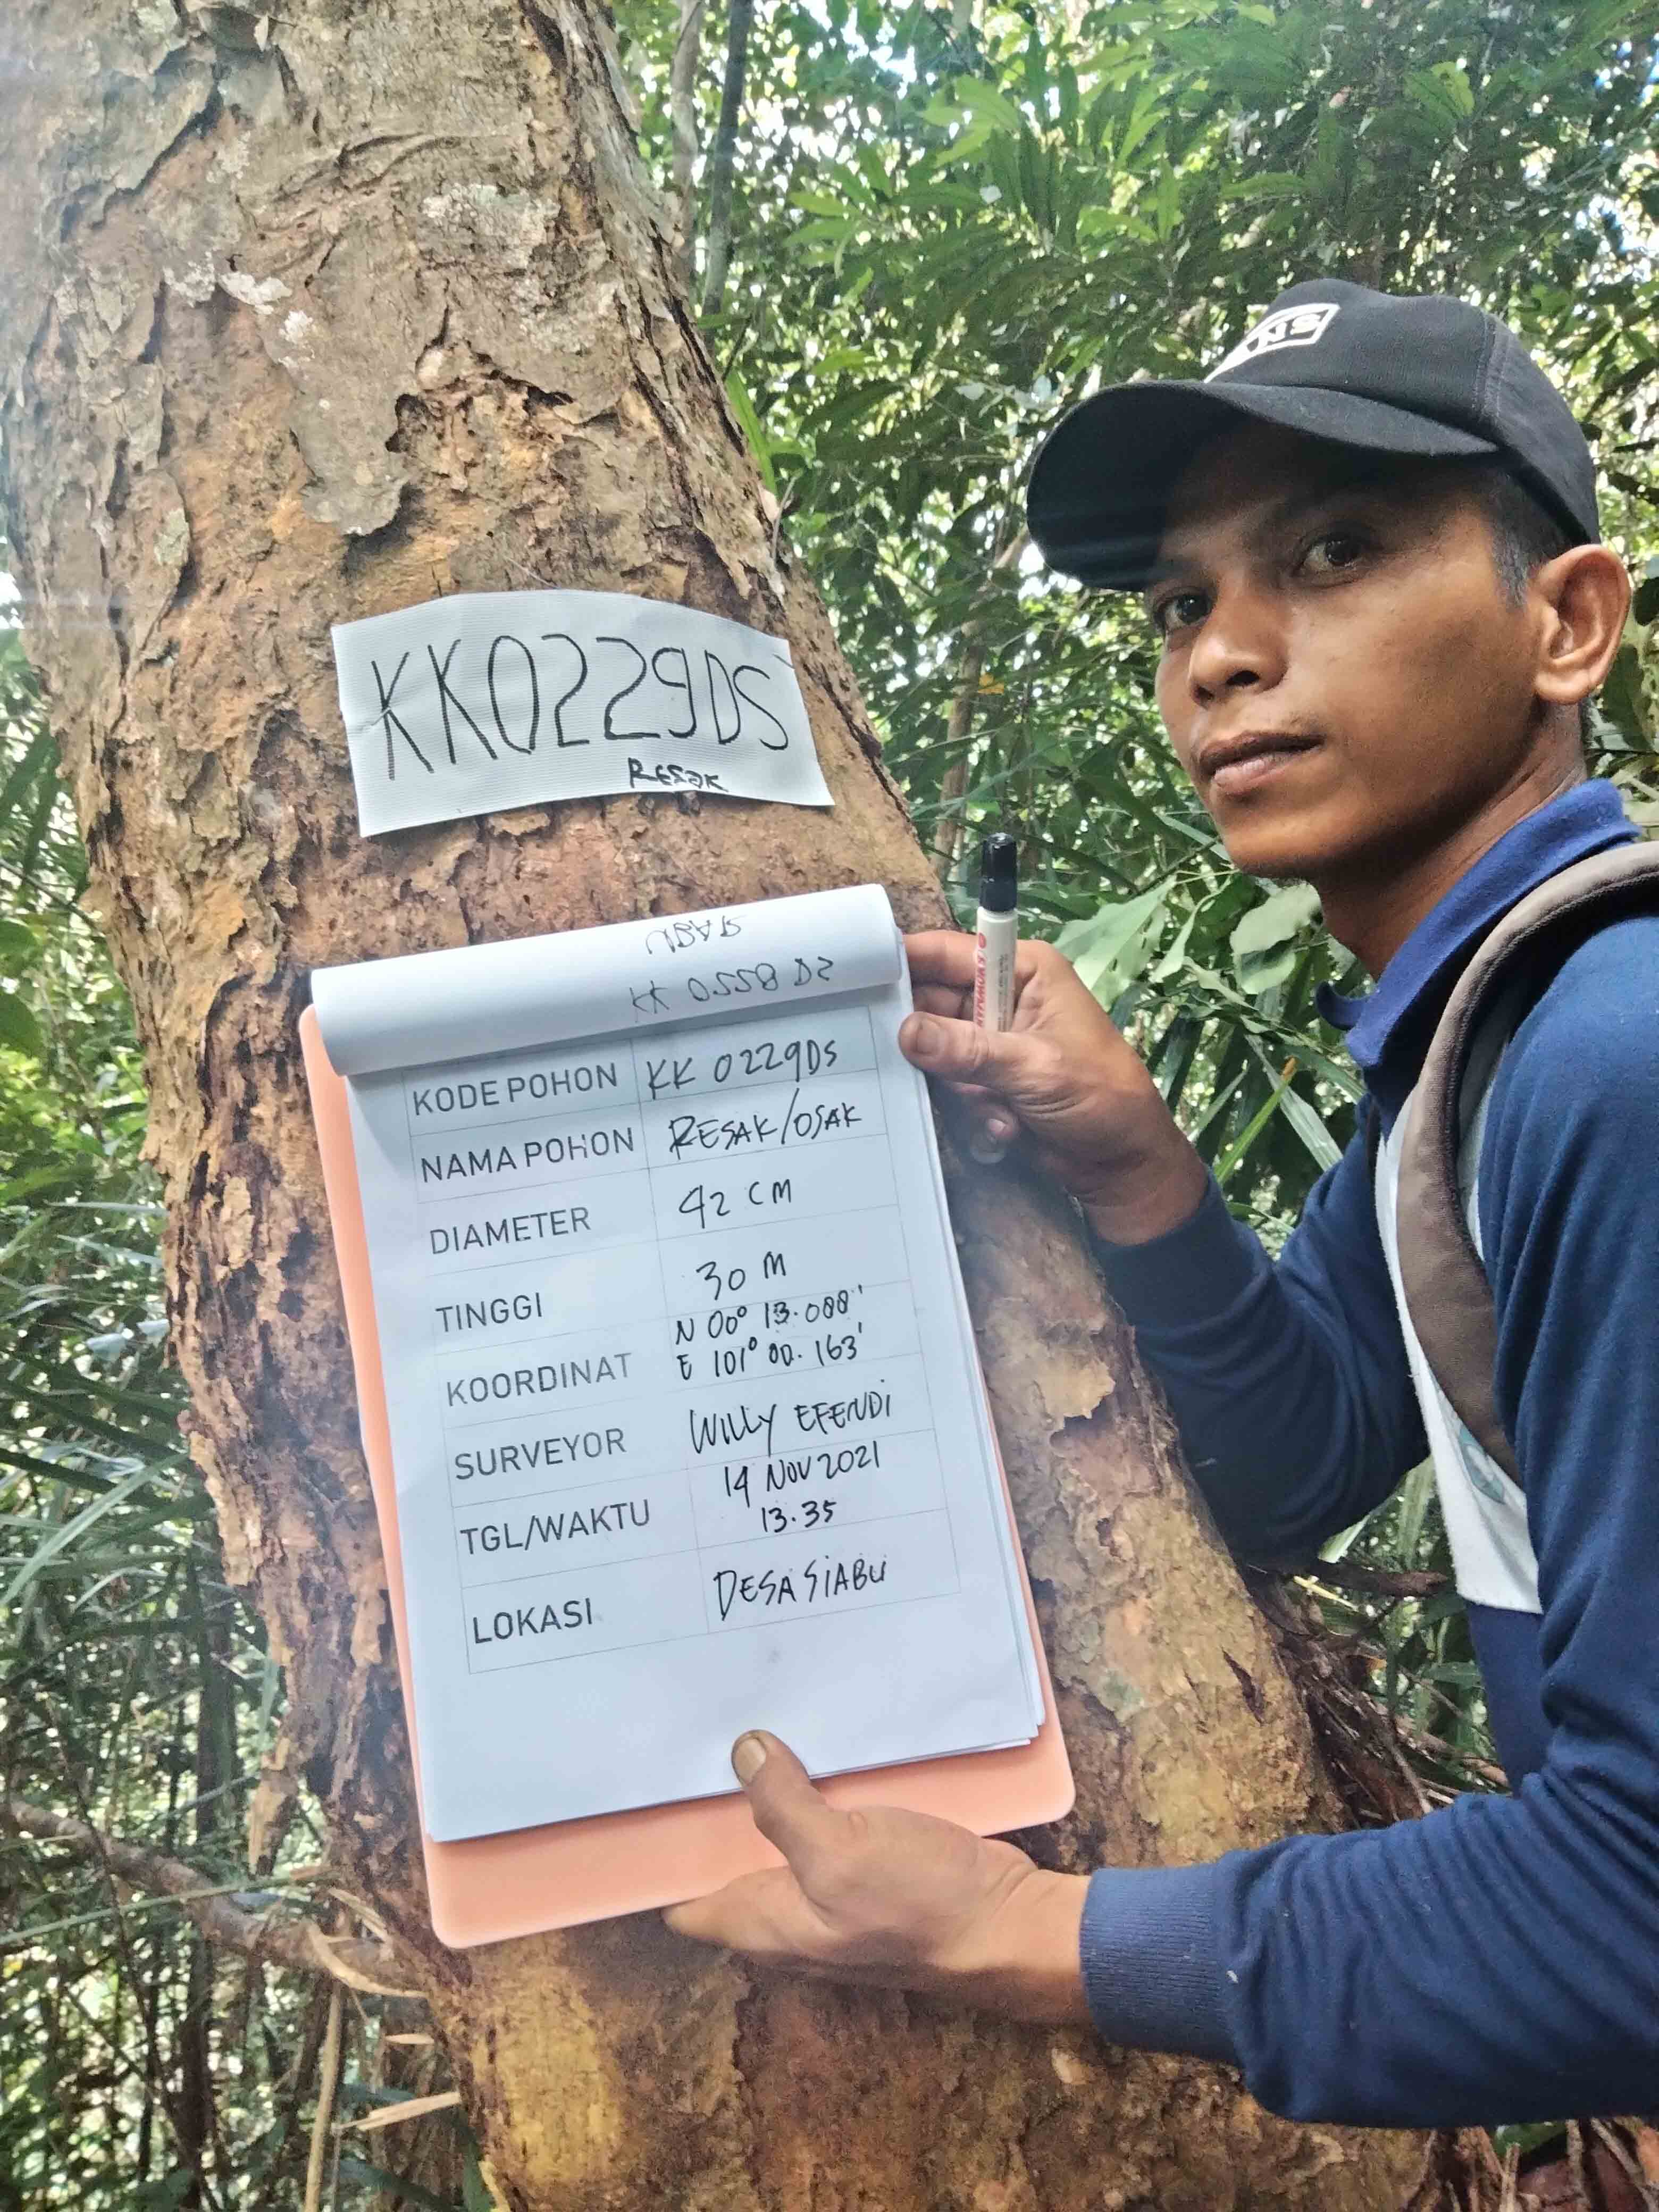 KK0229DS
RESAK
KODE POHON KK 0229DS
NAMA POHON RESAK/OSAK
DIAMETER 42 CM
TINGGI 30 M
KOORDINAT N 00° 13.088'
E 101° 00.163'
SURVEYOR WILLY EFENDI
TGL/WAKTU 14 NOV 2021
13.35
LOKASI DESA SIABU